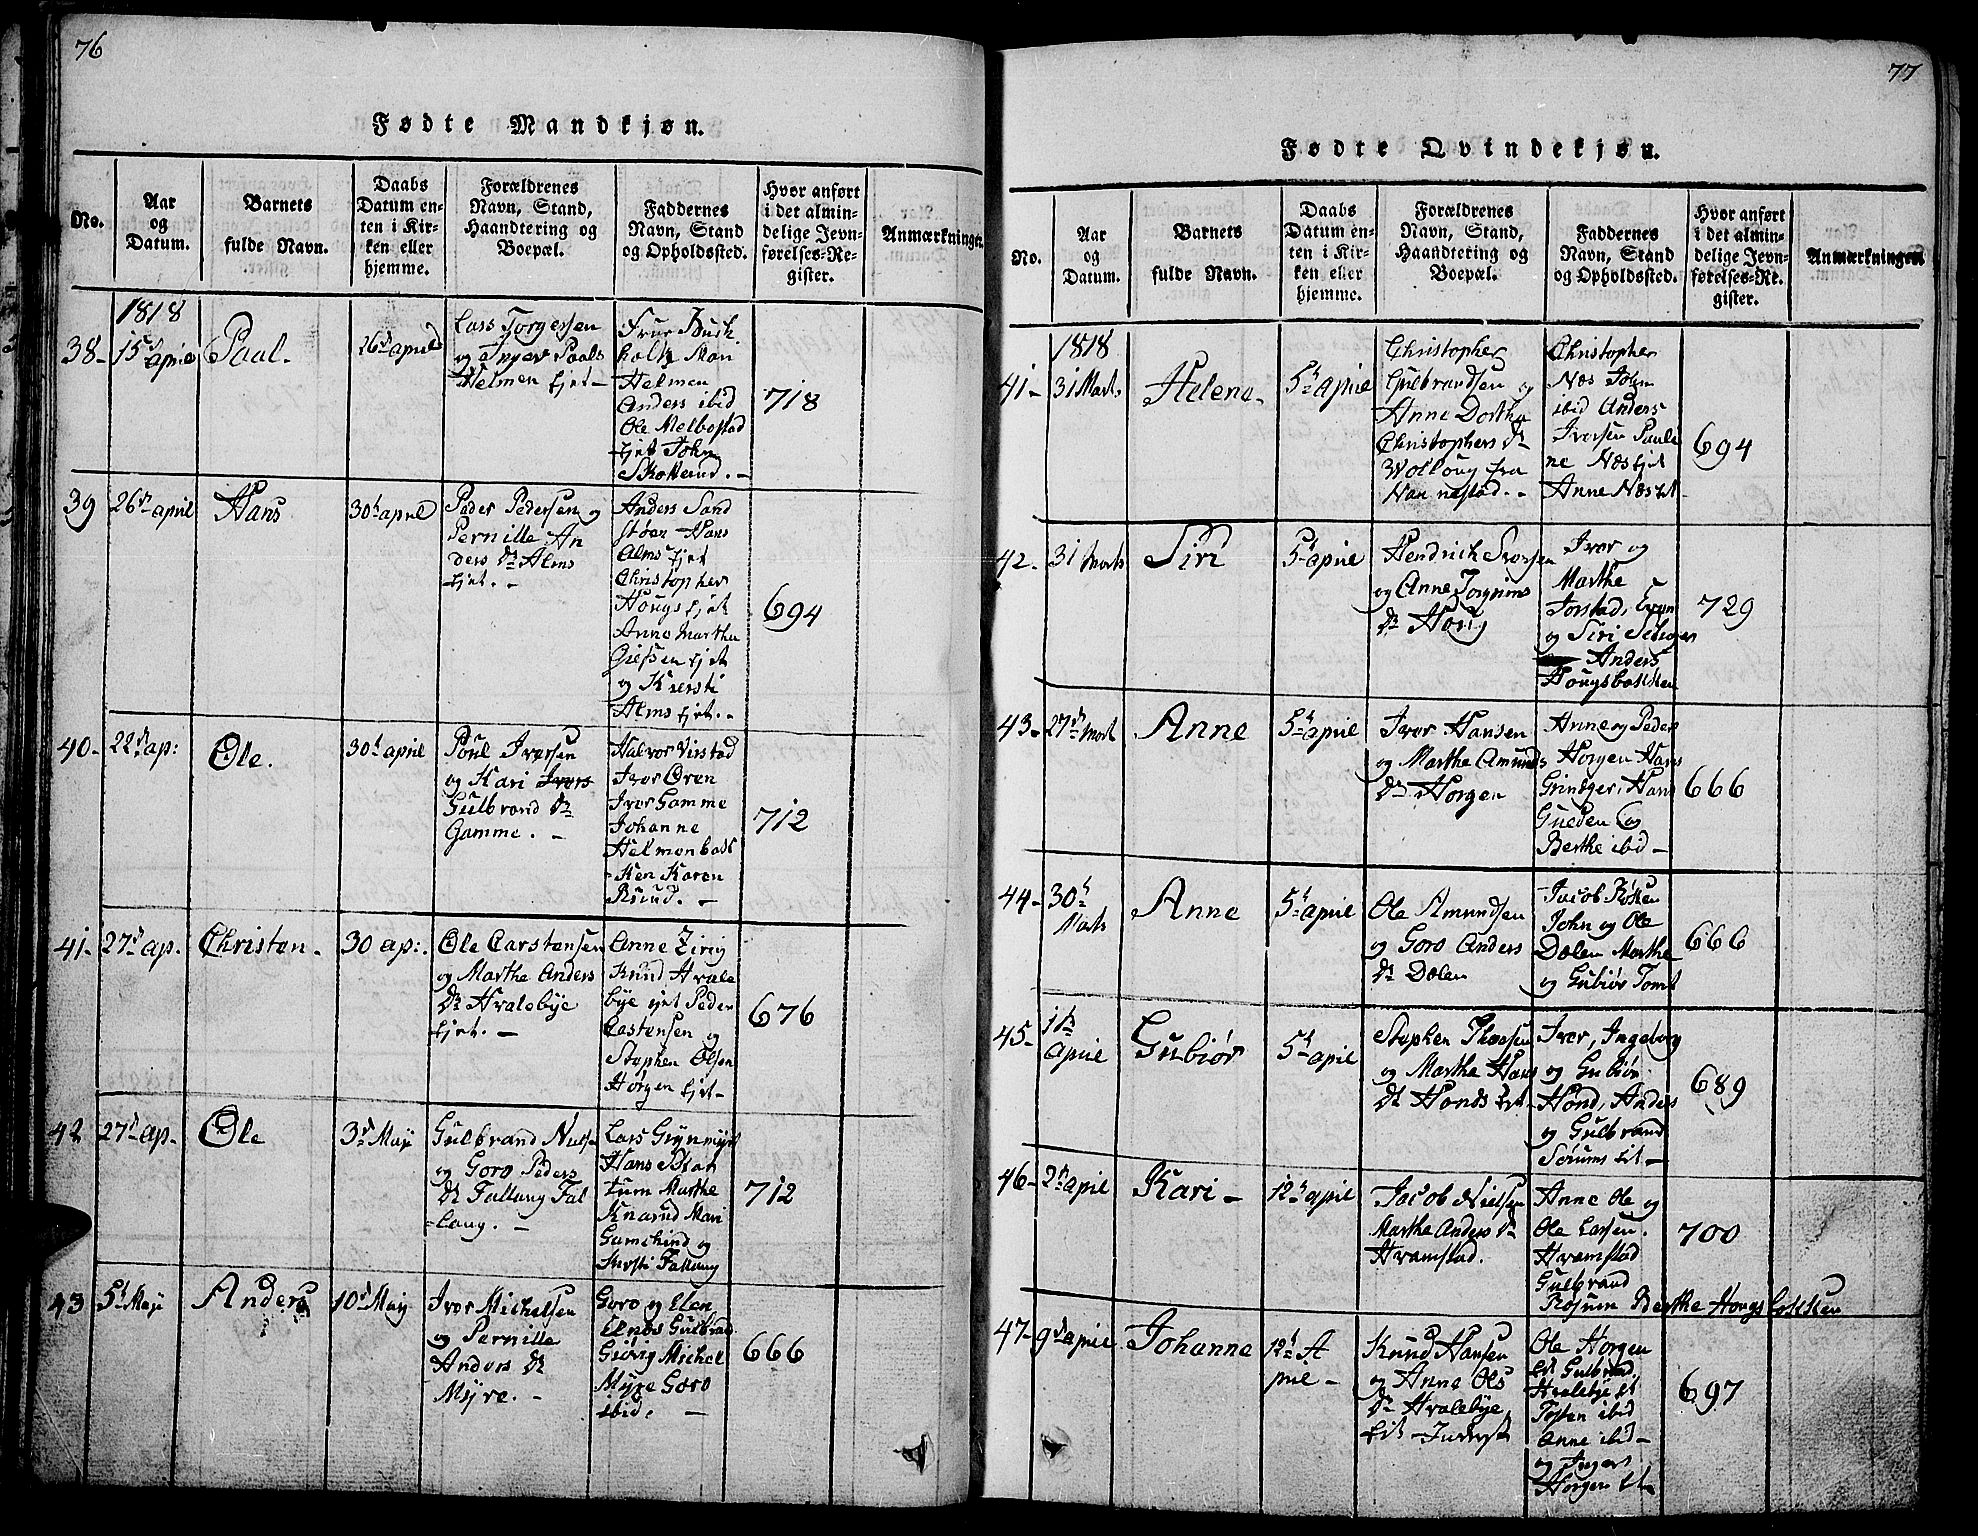 76
Fødte Mandkjøn.
No.
Aar
og
Datum.
Barnets
fulde Navn.
Daabs
Datum en-
ten i Kir-
ken eller
hjemme.
Forældrenes
Navn, Stand,
Haandtering og
Boepæl.
Faddernes
Navn, Stand
og Opholdssted.
Hvor anført
i det almin-
delige Jevn-
førelses-Re-
gister.
Anmærkninger.
38-
1818
15de april
Paal.
26d april
Lars Torgersen
og Inger Paals
Helmen Ejet-
Helmen
Anders ibid
Ole Melbostad
Ejet John
718
39
26de april
Hans
30t april
Peder Pedersen og
Pernille An
ders Dr Alms
Ejet. -
Anders Sand
støen Hans
Alms Ejet
Christopher
Hougs Ejet
Anne Marthe
Ejet
og Kiersti
Alms Ejet. -
694
40-
22d ap:
Ole.
30t april
Poul Iversen
og Kari Ivers
Gulbrand Dr
Gamme. -
Halvor Virstad
Iver Oren
Iver Gamme
Johanne
Helmenbak
-ken Karen
Rsiud. -
712
41-
27d ap.
Christen-
30 ap:
Ole Carstensen
og Marthe Anders
Dr Hvalebye
Ejet. -
Anne
Knud Hvale
bye ejet Peder
Castensen og
Stephen Olsen
Horgen Ejet-
676
42
27d ap-
Ole
3d May
Gulbrand Niels-
og Goro Peders
Dr Fallang Fal
-lang. -
Lars Grynmyr
Hans
tum Marthe
Knarud Mari
og
Kiersti Fallang
712
43
5t Maji
Anders
10d May
Iver Michelsen
og Pernille
Anders Dr
Myre. -
Goro og Elen
Elnes Gulbrad
Michel
Myre Goro
ibid. -
666
77
Fødte Qvindekjøn.
No.
Aar
og
Datum.
Barnets
fulde Navn.
Daabs
Datum en-
ten i Kir-
ken eller
hjemme.
Forældrenes
Navn, Stand,
Haandtering og
Boepæl.
Faddernes
Navn, Stand
og Opholdssted.
Hvor anført
i det almin-
delige Jevn-
førelses-Re-
gister.
Anmærkninger.
41-
1818
31 Marts
Helene-
5t apile
Christopher
Gulbrandsen og
Anne Dorthe
Christophers Dr
Woldoug fra
Nannestad. -
Christopher
Næs John
ibid Anders
Iversen Pauli
ne Næs Ejet
Anne Næs Et
694
42-
31 Marts
Siri
5t apile
Hendrich Iversen
og Anne Torgrims
Dr Houg
Iver og
Marthe
Torstad, Even
og Siri
Anders
Hougsbakken
729
43-
27d Mart
Anne
5t apile
Iver Hansen
og Marthe Amunds
Dr Horgen
Anne og Peder
Horgen Hans
Grinager, Hans
Gueden og
Berthe ibid -
666
44-
30t
Marts
Anne
5t apile
Ole Amundsen
og Goro Anders
Dr Dolen
Jacob Røken
John og Ole
Dolen Marthe
og Gubiør Tomt
666
45-
1te
apile
Gubiør
5t apile
Stephen Thoesen
og Marthe Hans
Dr Honds Eit-
Iver, Ingeborg
og Gubiør
Hond, Anders
og Gulbrand
Sorums Eit -
689
46-
2n apil
Kari -
12t apile
Jacob Nielsen
Marthe Anders Dr
Hvamstad.
Anne Ole og
Ole Larsen.
Hvamstad
Gulbrand
Rosum Berthe Hougsbakken
700
47-
9d apile
Johanne
12t A
pile -
Knud Hansen
og Anne Ols
Dr Hvalebye
Eit -
Ole Horgen
Et Gulbrand
Hvalebye Et
Tosten ibid
Anne ibid-
og Ingers
Horgen Et -
697